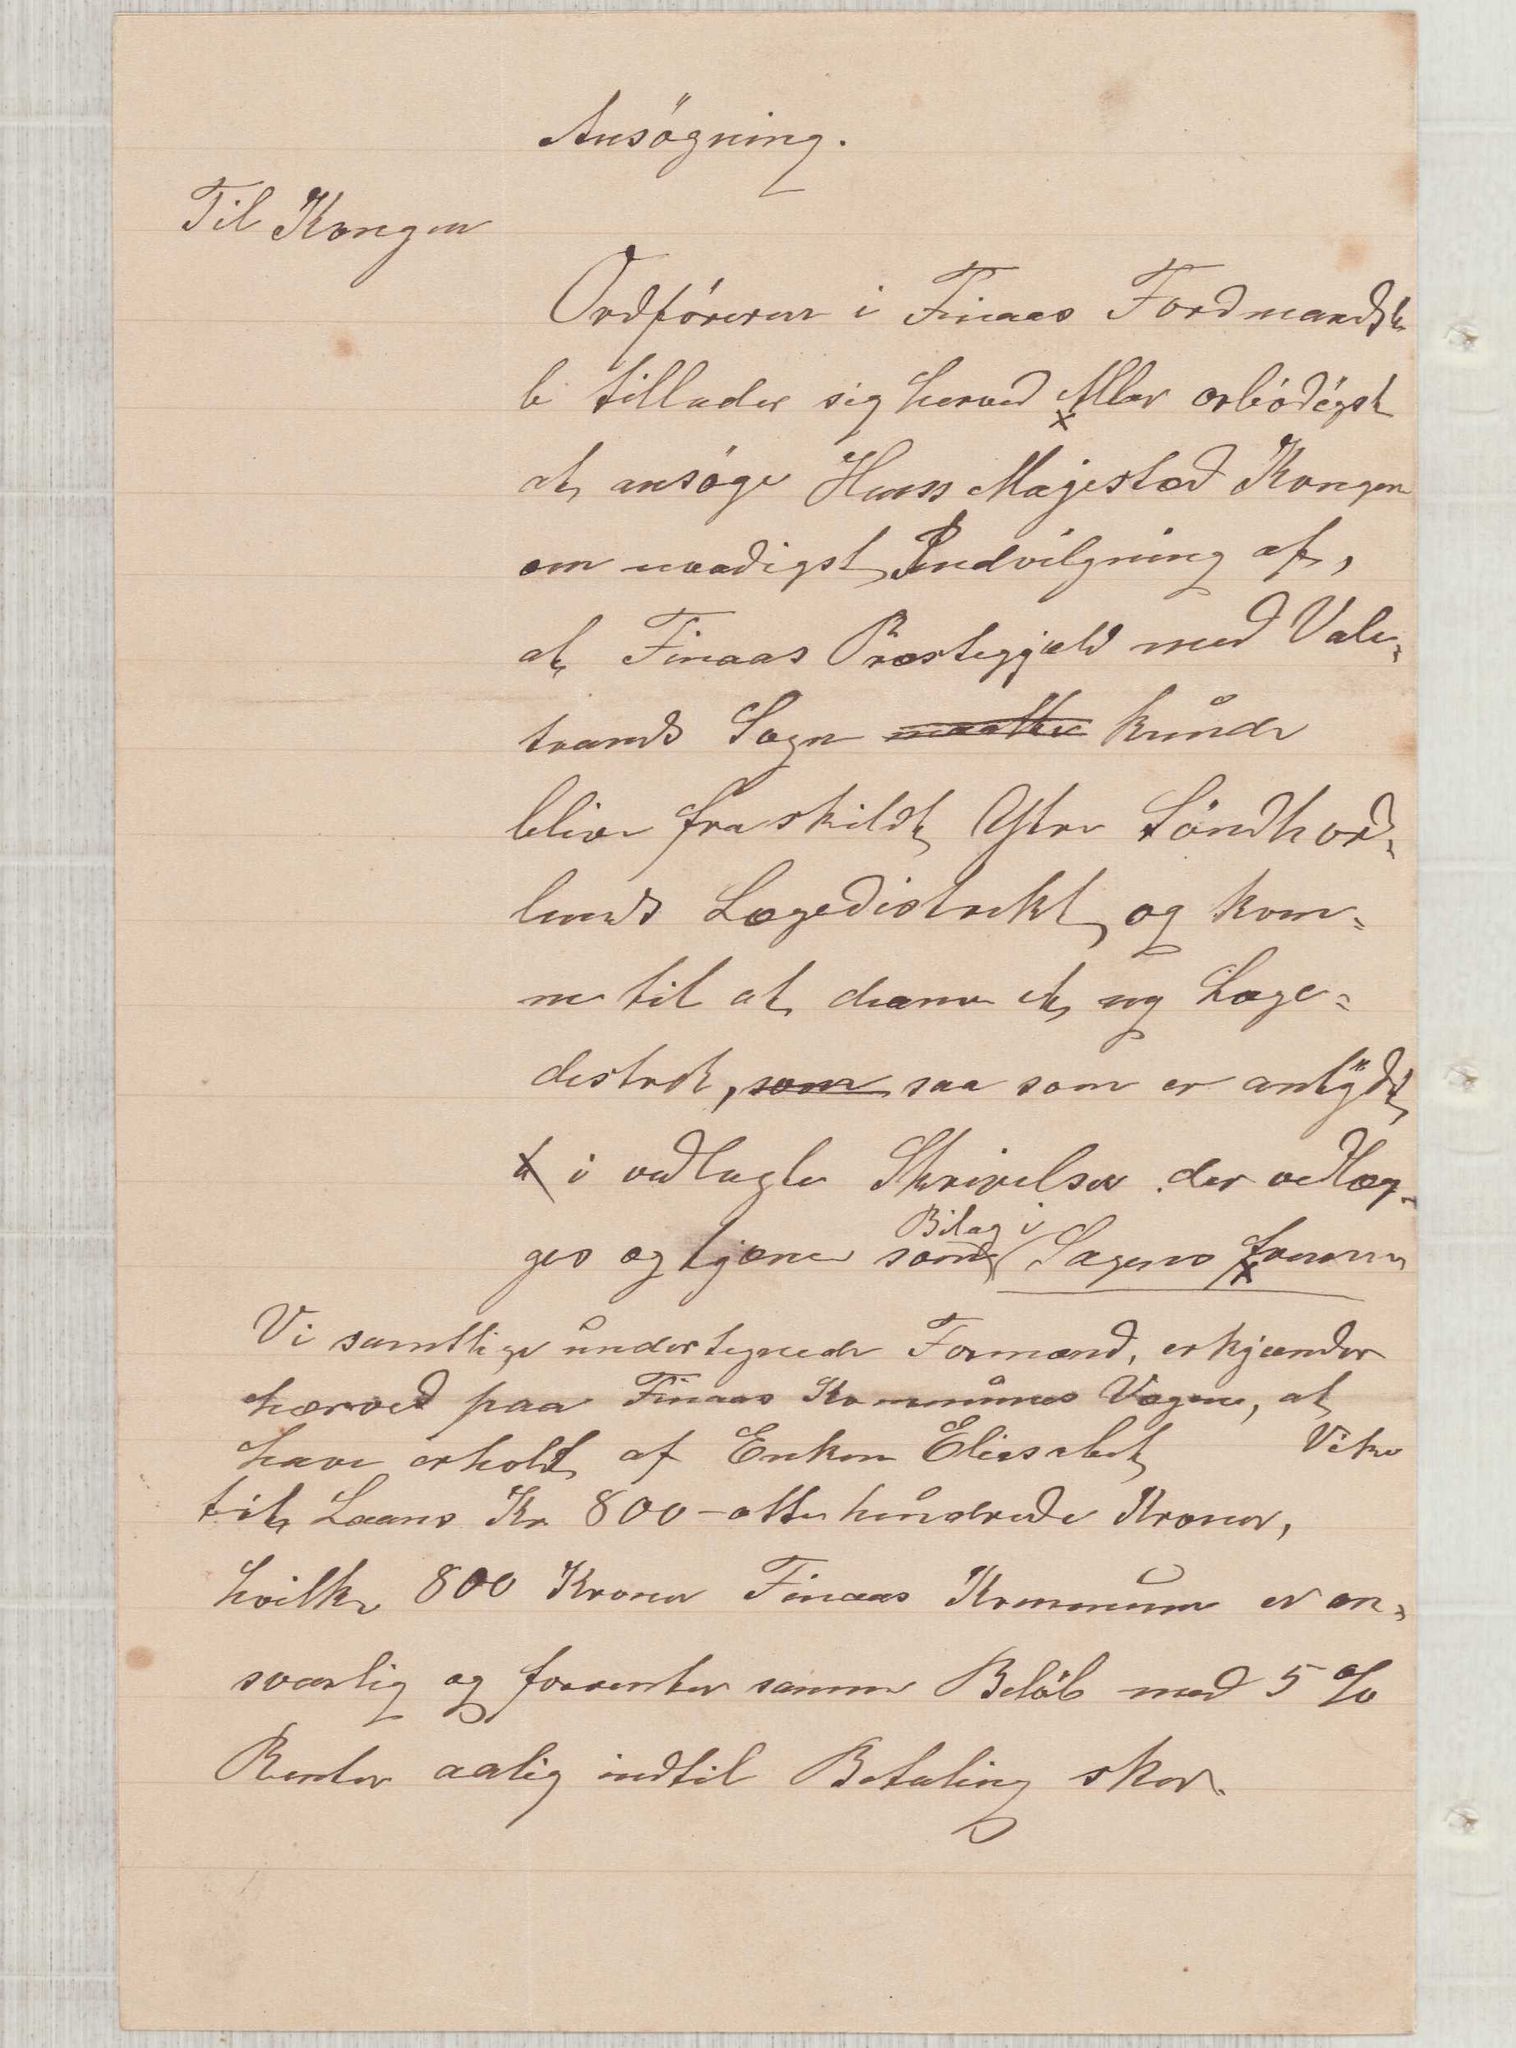 Ansögning.
Til Kongen
Ordföreren i Finaas Fordmandsk
b tillader sig herved Aller ærbödigst
at ansöge Hans Majestæd Kongen
om naadigst Indvilgning af,
at Finaas Præstegjæld med Vale-
trands Sogn maatte kunde
blive fraskildt Ytre Söndhord-
lands Lægedistrikt og kom-
me til at danne et ny Læge-
distrikt, som saa som er antydet
i vedlagte Skrivelser der vedlæg-
ges og tjene som Bilag i Sagens fremme
Vi samtlige undertegnede Formænd, erkjænder
herved paa Finaas Kommunes Vægne, at
have erholdt af Enken Eliesabet Vike
til Laans Kr 800 - otte hundrede Kroner,
hvilke 800 Kroner Finaas Kommune er an-
svarlig og forrenter samme Belöb med 5 %
Renter aarlig indtil Betaling sker.